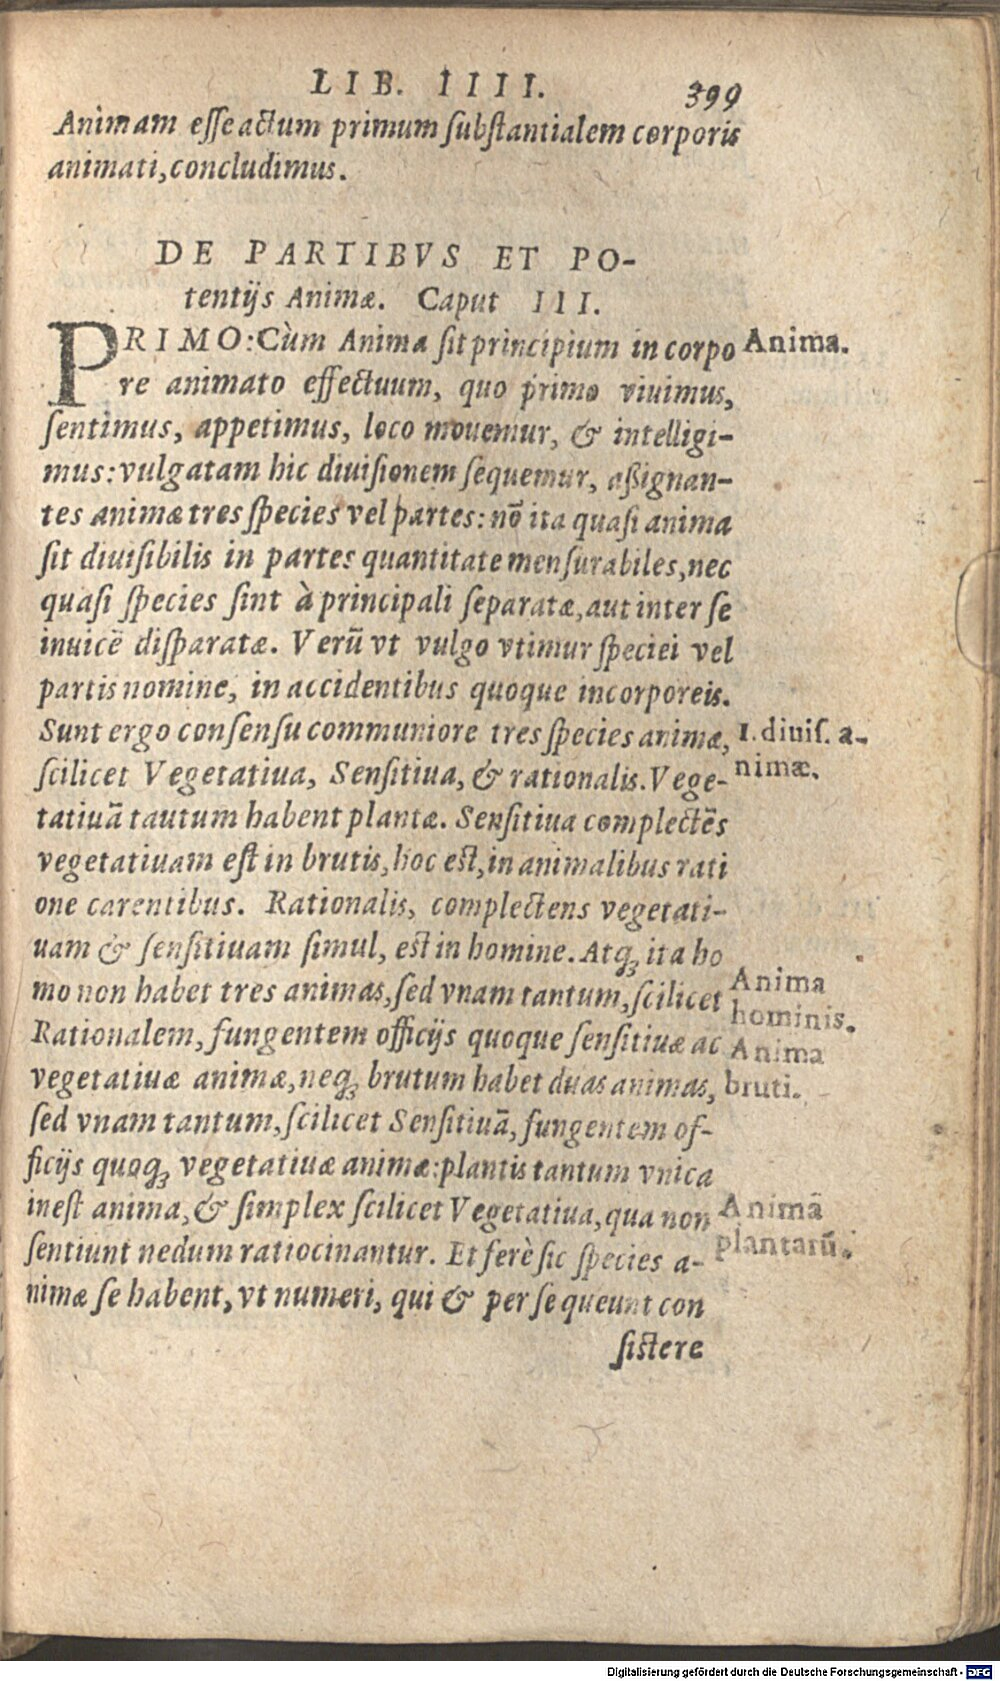 LIB. IIII. 399
Animam esse actum primum substantialem corporis
animati, concludimus.
DE PARTIBVS ET PO-
tentijs Animæ. Caput III.
PRIMO: Cùm Anima sit principium in corpo
re animato effectuum, quo primo viuimus,
sentimus, appetimus, loco mouemur, & intelligi-
mus: vulgatam hic diuisionem sequemur, aßignan-
tes animæ tres species vel partes: nõ ita quasi anima
sit diuisibilis in partes quantitate mensurabiles, nec
quasi species sint à principali separatæ, aut inter se
inuicẽ disparatæ. Verũ vt vulgo vtimur speciei vel
partis nomine, in accidentibus quoque incorporeis.
Sunt ergo consensu communiore tres species animæ,
scilicet Vegetatiua, Sensitiua, & rationalis. Vege-
tatiuã tautum habent plantæ. Sensitiua complectẽs
vegetatiuam est in brutis, hoc est, in animalibus rati
one carentibus. Rationalis, complectens vegetati-
uam & sensitiuam simul, est in homine. Atq; ita ho
mo non habet tres animas, sed vnam tantum, scilicet
Rationalem, fungentem officijs quoque sensitiuæ ac
vegetatiuæ animæ, neq; brutum habet duas animas,
sed vnam tantum, scilicet Sensitiuã, fungentem of-
ficijs quoq; vegetatiuæ animæ: plantis tantum vnica
inest anima, & simplex scilicet Vegetatiua, qua non
sentiunt nedum ratiocinantur. Et ferè sic species a-
nimæ se habent, vt numeri, qui & per se queunt con
sistere
Anima.
1. diuis. a-
nimæ.
Anima
hominis.
Anima
bruti.
Animã
plantarũ.
Digitalisierung gefördert durch die Deutsche Forschungsgemeinschaft - DFG